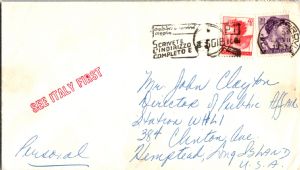 SCRIVETE
INDIRIZZO
COMPLETO E
SEE ITALY FIRST
Mr. John Clayton
Director of Public Affairs
Station WHLI
384 Clinton Ave
Hempstead, Long ISLAND
U.S.A.
Personal